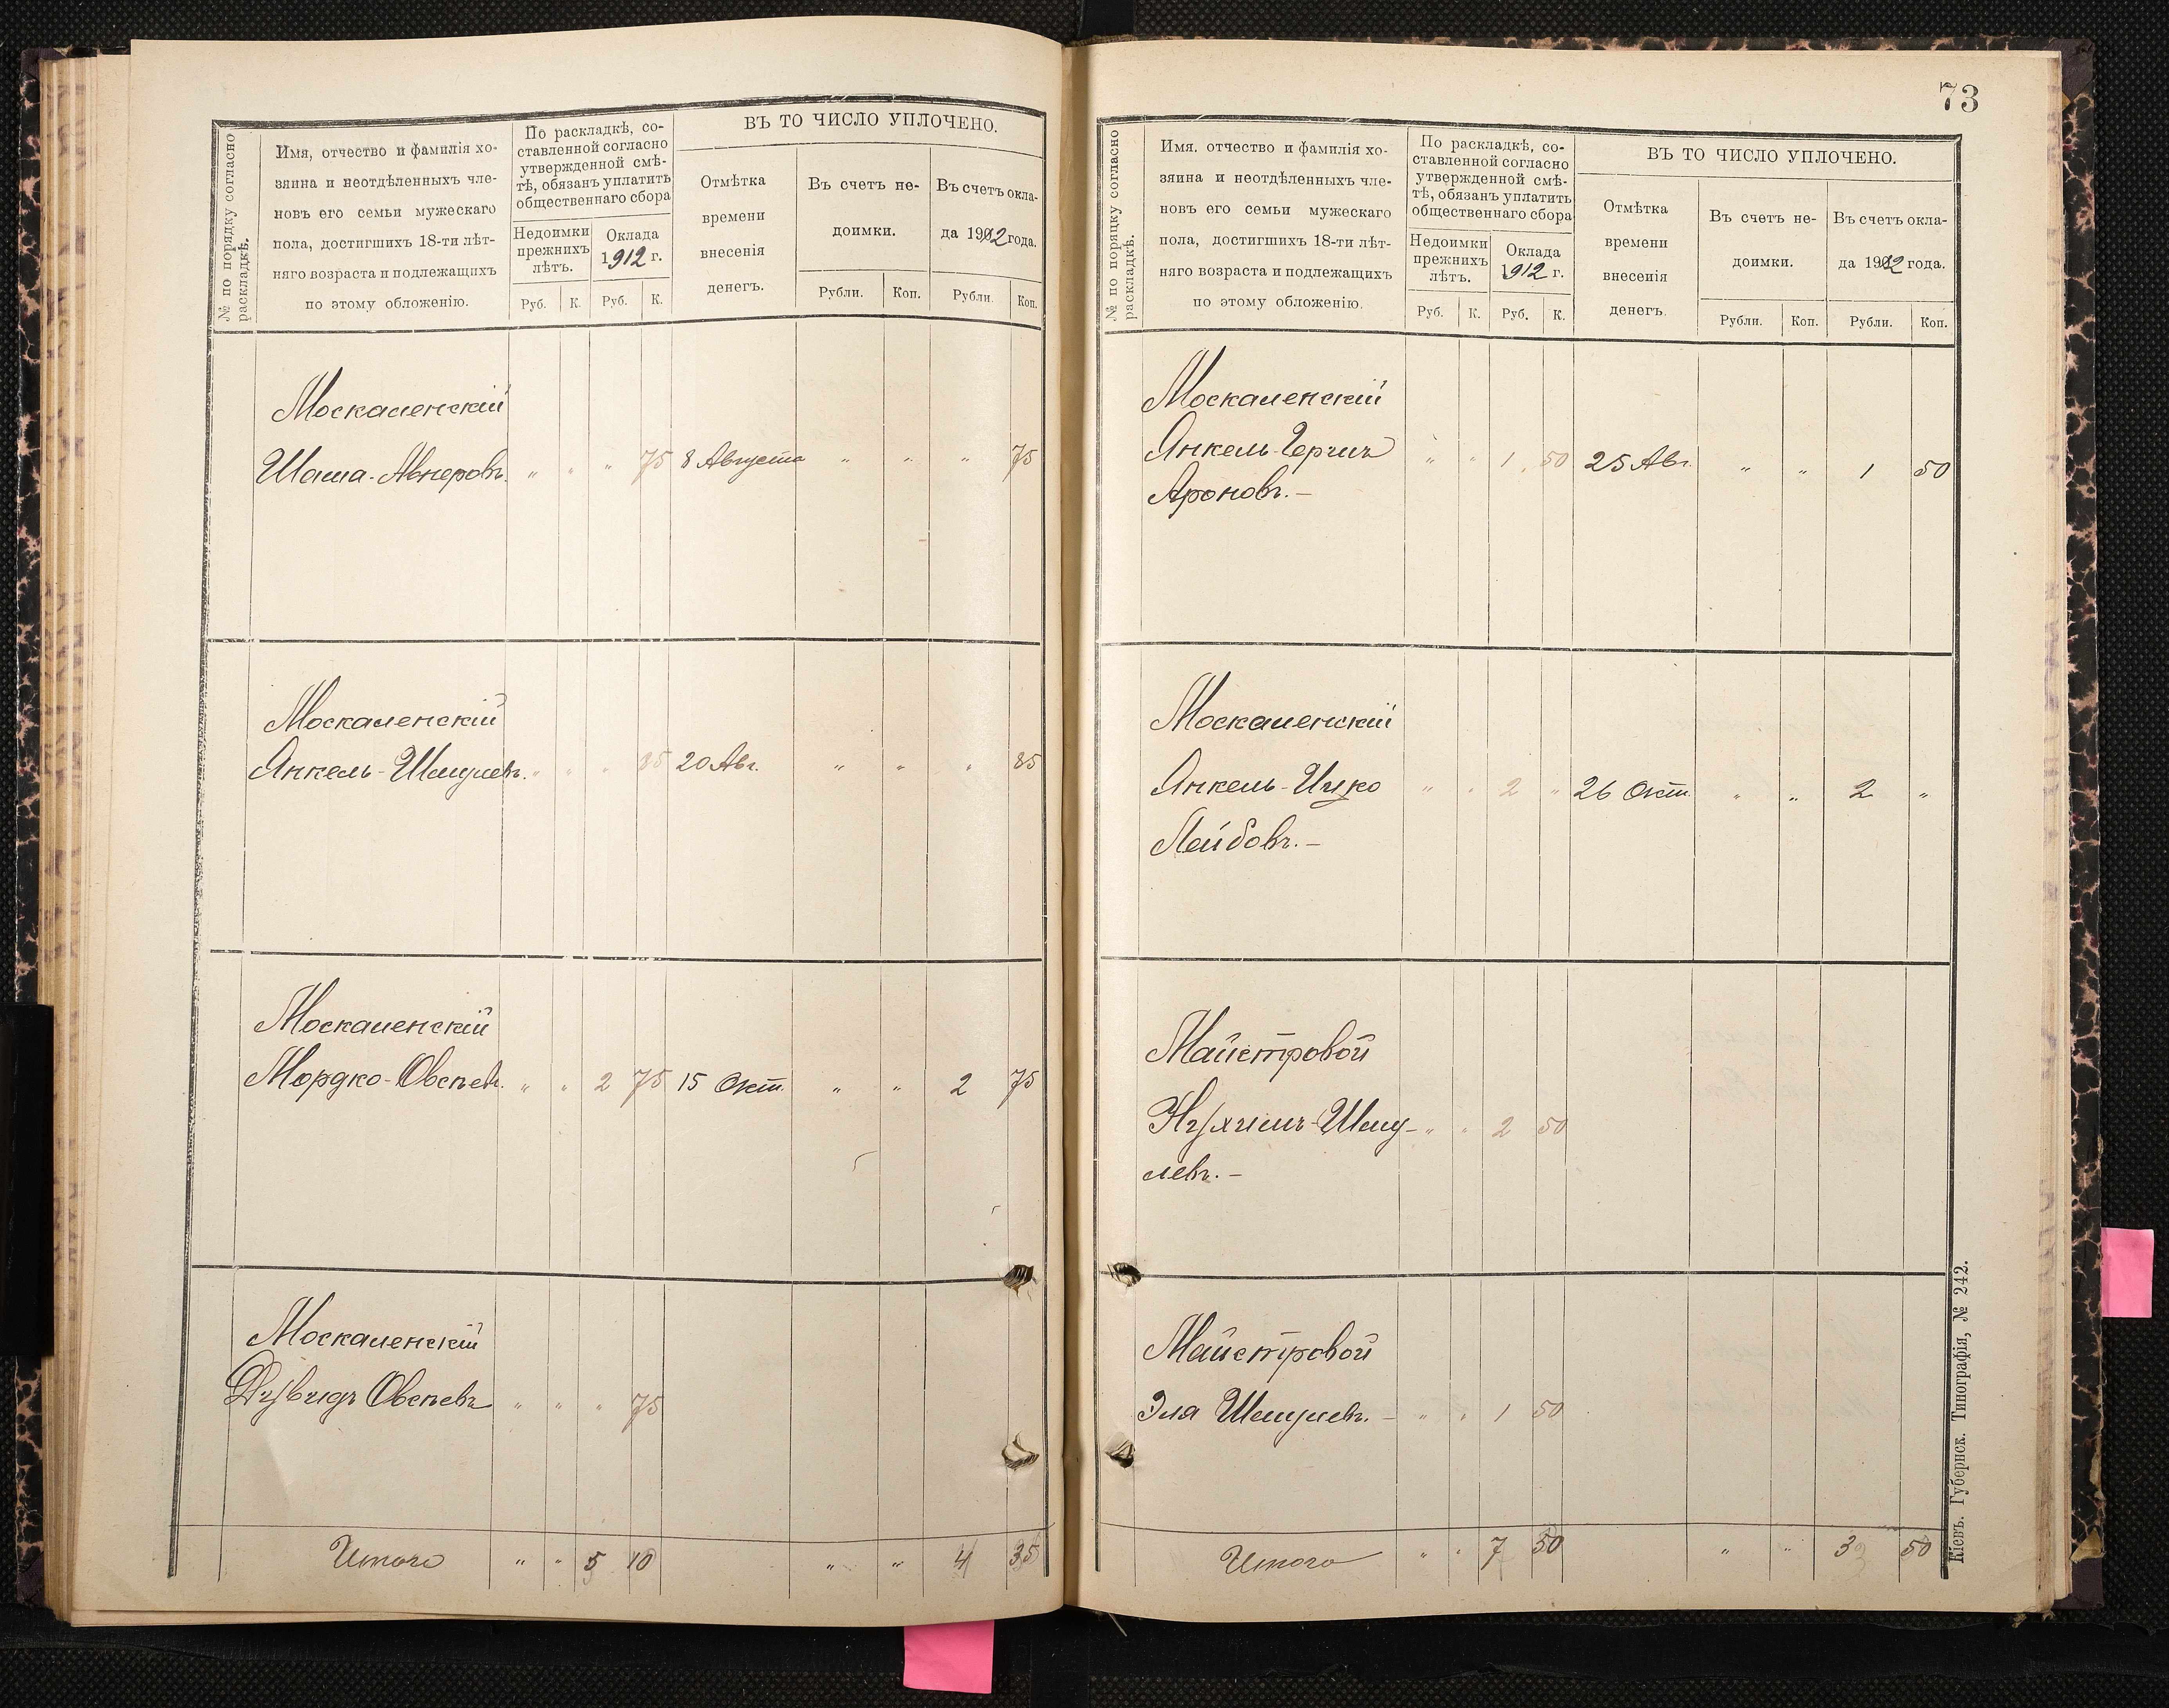 № по порядку согласно
раскладкѣ.
Имя, отчество и фамилія хо-
зяина и неотдѣленныхъ чле-
новъ его семьи мужескаго
пола, достигшихъ 18-ти лѣт-
няго возраста и подлежащихъ
по этому обложенію.
По раскладкѣ, со-
ставленной согласно
утвержденной смѣ-
тѣ, обязанъ уплатить
общественнаго сбора
Недоимки
прежнихъ
лѣтъ.
Оклада
1912 г.
Руб. К. Руб. К.
ВЪ ТО ЧИСЛО УПЛОЧЕНО.
Отмѣтка
времени
внесенія
денегъ.
Въ счетъ не-
доимки.
Въ счетъ окла-
да 1912 года.
Рубли. Коп. Рубли. Коп.
Москаленскій
Шама-Авнеровъ. " " " 75 8 Августа " " " 75
Москаленскій
Янкель-Шмулевъ. " " " 85 20 Авг. " " " 85
Москаленскій
Мордко-Овсѣевъ. " " 2 75 15 Окт. " " 2 75
Москаленскій
Овсѣевъ " " " 75
Итого " " 5 10 " " 4 35
73
№ по порядку согласно
раскладкѣ.
Имя, отчество и фамилія хо-
зяина и неотдѣленныхъ чле-
новъ его семьи мужескаго
пола, достигшихъ 18-ти лѣт-
няго возраста и подлежащихъ
по этому обложенію.
По раскладкѣ, со-
ставленной согласно
утвержденной смѣ-
тѣ, обязанъ уплатить
общественнаго сбора
Недоимки
прежнихъ
лѣтъ.
Оклада
1912 г.
Руб. К. Руб. К.
ВЪ ТО ЧИСЛО УПЛОЧЕНО.
Отмѣтка
времени
внесенія
денегъ.
Въ счетъ не-
доимки.
Въ счетъ окла-
да 1912 года.
Рубли. Коп. Рубли. Коп.
Москаленскій
Янкель-Гершъ " " 1 50 25 Авг. " " 1 50
Ароновъ.—
Москаленскій
Янкель-Ицко " " 2 " 26 Окт. " " 2 "
Лейбовъ.—
Майстровой
Нухимъ-Шму- " " 2 50
левъ.—
Майстровой
Эля Шмулевъ.— " " 1 50
Итого " " 7 50 " " 3 50
Кіевъ. Губернск. Типографія, № 242.